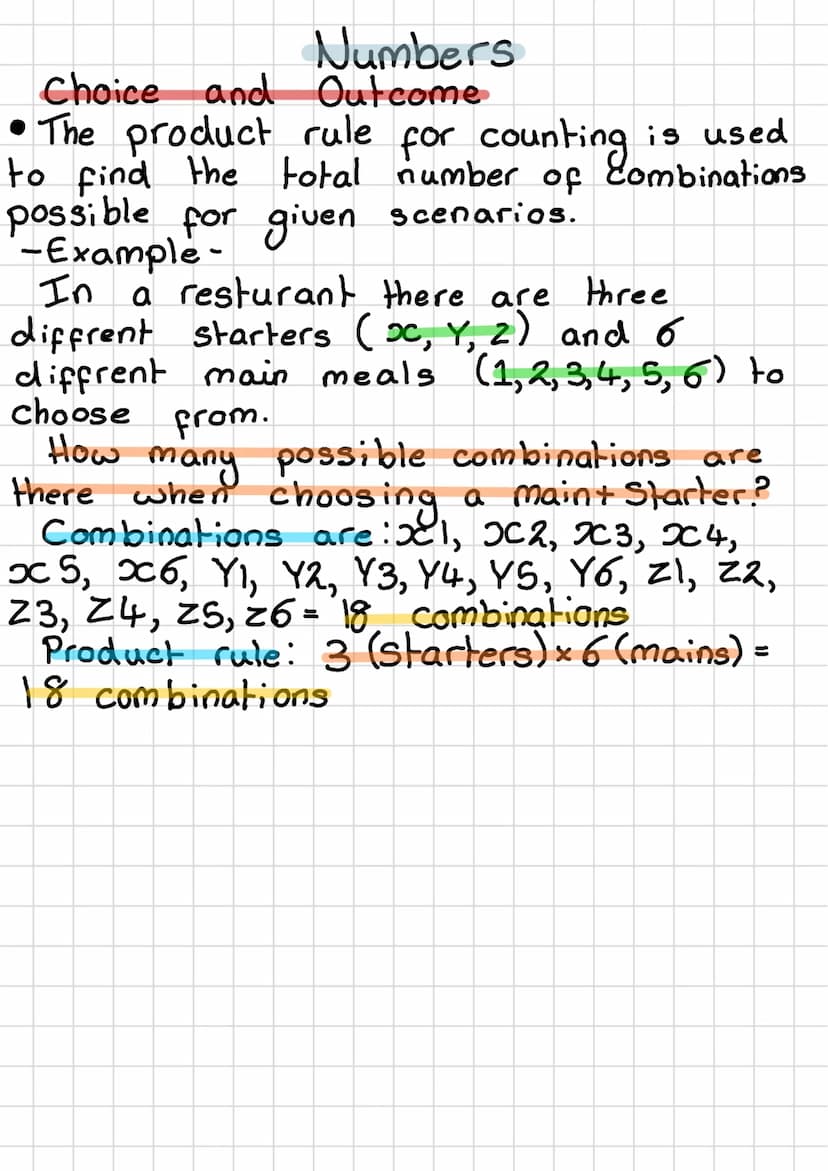 Numbers
Choice and Outcome
• The product rule for counting is used
to find the total number of Combinations
possible for given scenarios.
-Example-
In a resturant there are three
diffrent starters (x, Y, Z) and 6
diffrent main meals (1,2,3,4,5,6) to
choose from.
How many possible combinations are
there when choosing a main+Starter?
Combinations are: x1, x2, x3, x4,
x5, x6, Y1, Y2, Y3, Y4, Y5, Y6, Z1, Z2,
Z3, Z4, Z5, Z6 = 18 combinations
Product rule: 3 (starters) × 6 (mains) =
18 combinations